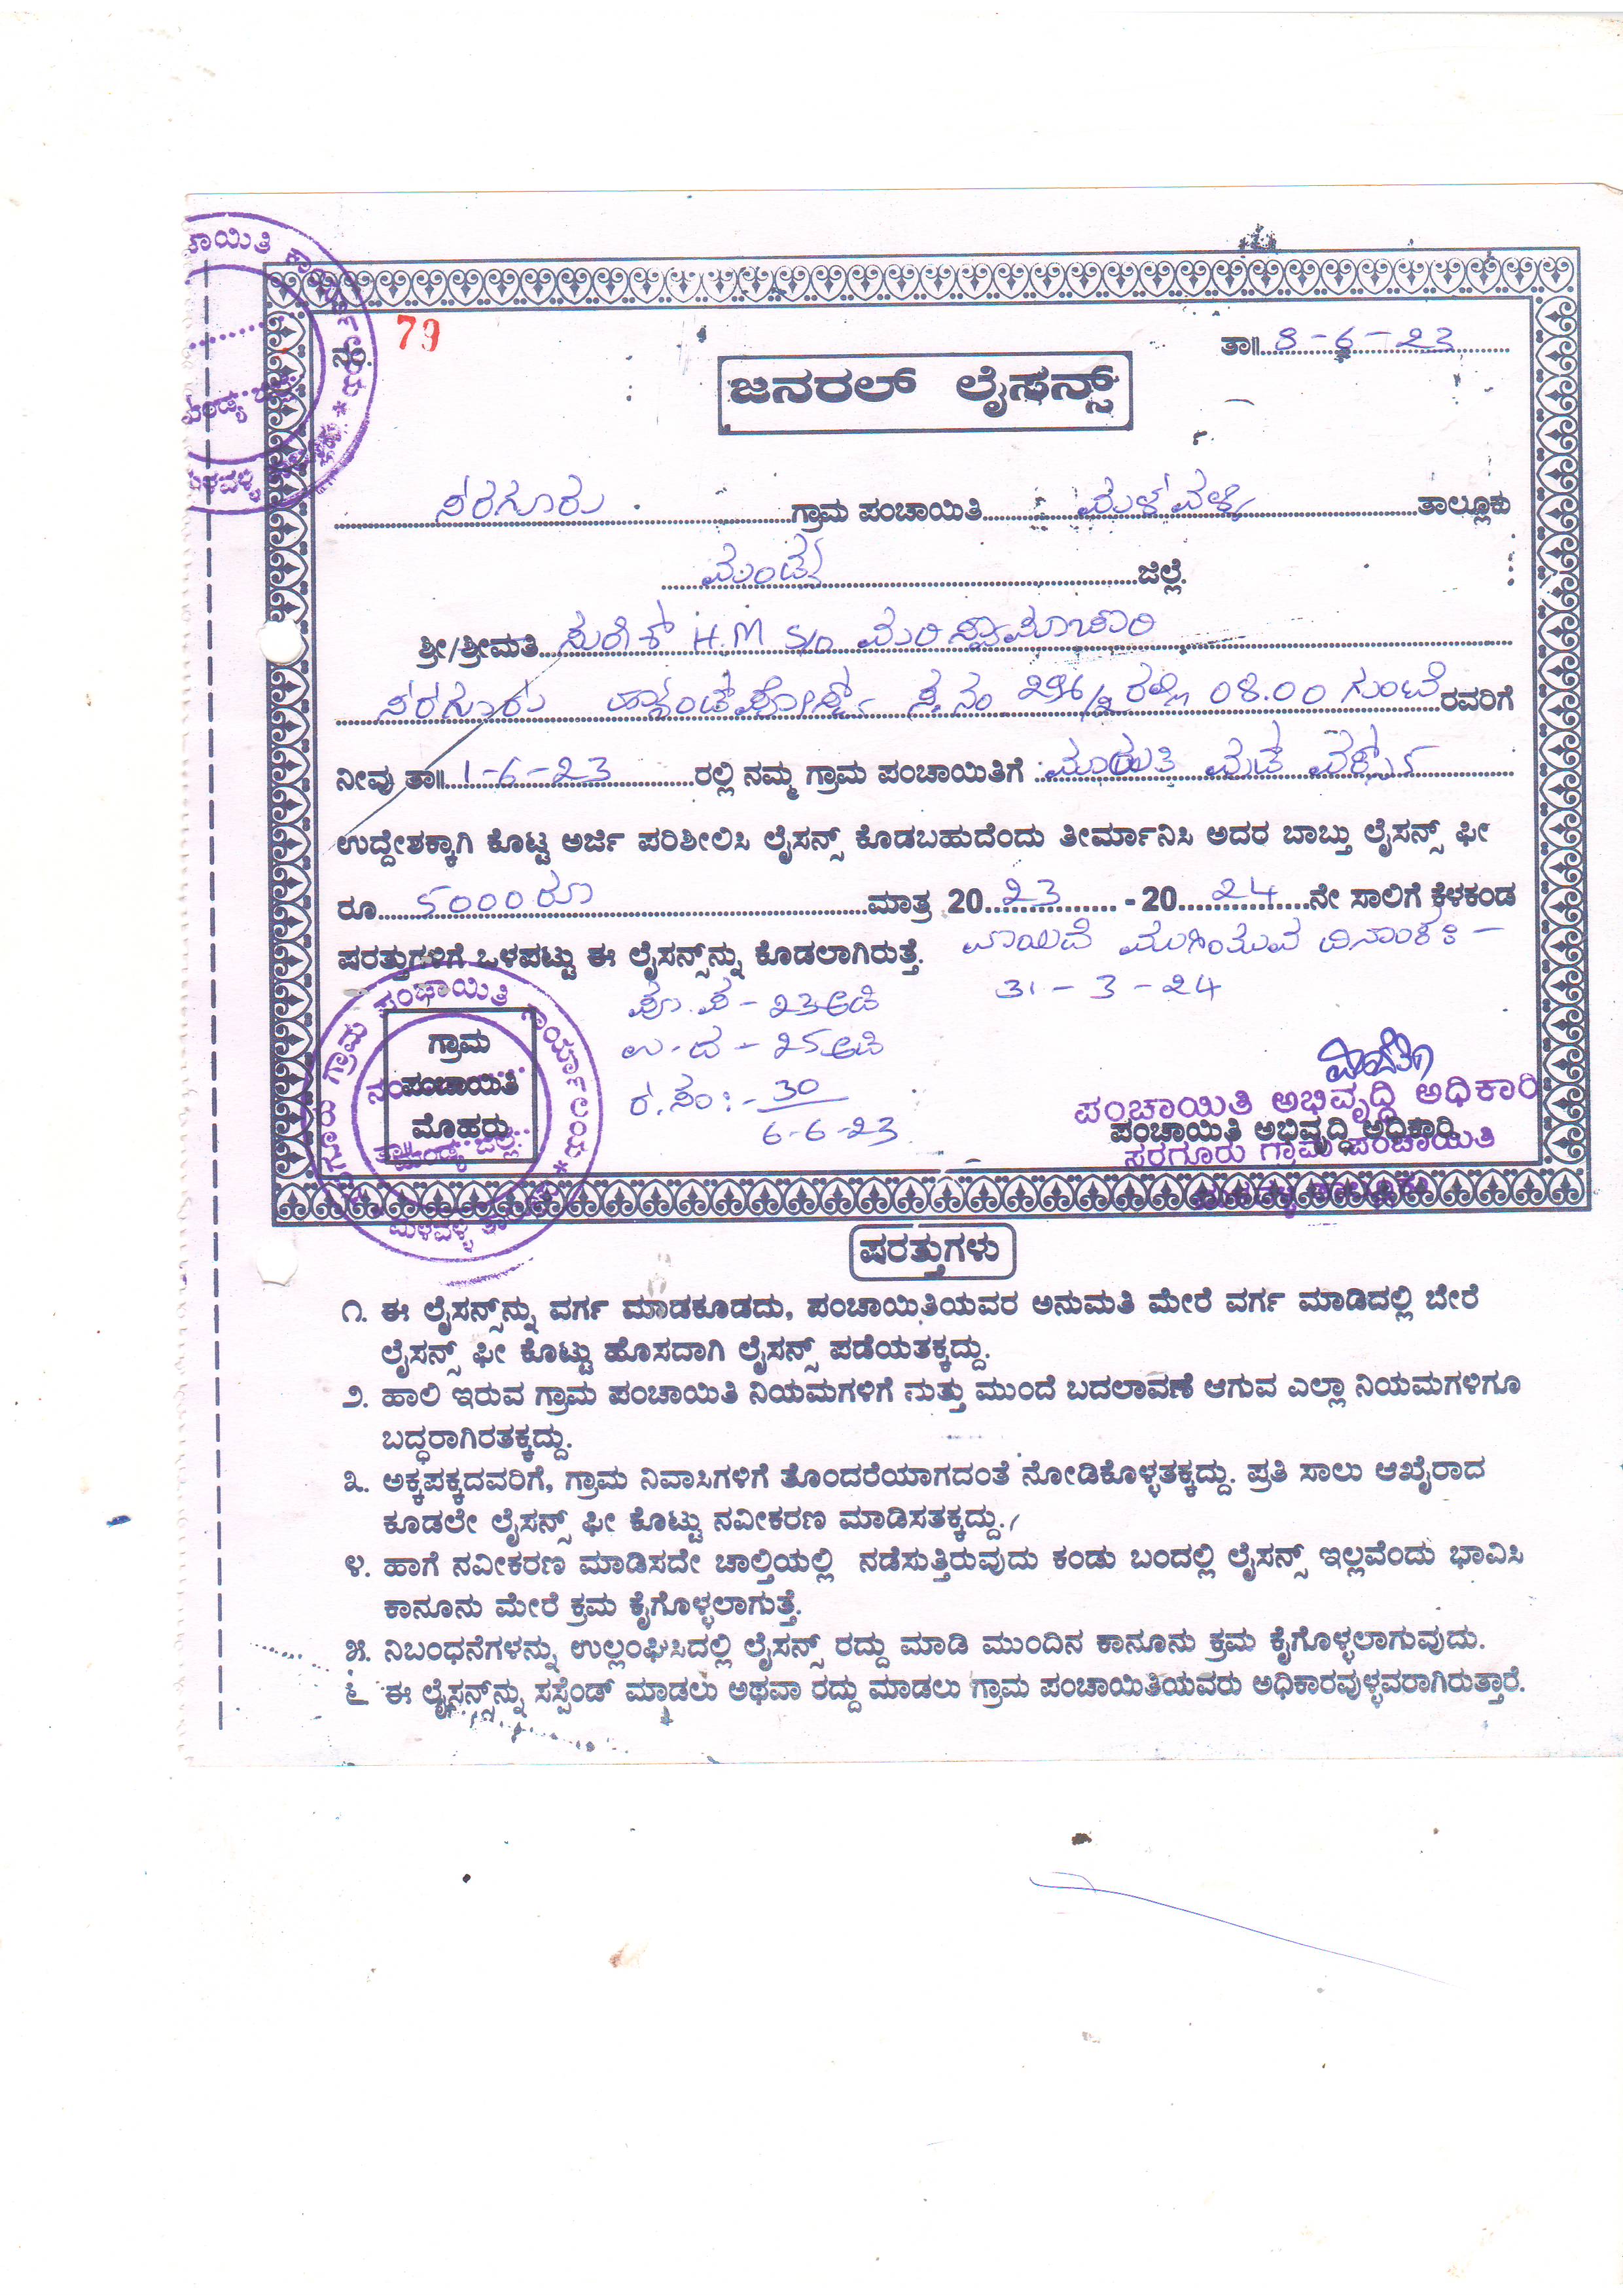 ನಂ. 79
ತಾ॥ 8-6-23
ಜನರಲ್ ಲೈಸನ್ಸ್
ಸರಗೂರು ಗ್ರಾಮ ಪಂಚಾಯಿತಿ ಮಳವಳ್ಳಿ ತಾಲ್ಲೂಕು
ಮಂಡ್ಯ ಜಿಲ್ಲೆ.
ಶ್ರೀ/ಶ್ರೀಮತಿ ಸುರೇಶ್ H.M S/o ಮರಿಸ್ವಾಮಾಚಾರಿ
ಸರಗೂರು ಹ್ಯಾಂಡ್‌ಪೋಸ್ಟ್ ಸ.ನಂ 296/2 ರಲ್ಲಿ 04.00 ಗುಂಟೆ ರವರಿಗೆ
ನೀವು ತಾ॥ 1-6-23 ರಲ್ಲಿ ನಮ್ಮ ಗ್ರಾಮ ಪಂಚಾಯಿತಿಗೆ ಮಾರುತಿ ವುಡ್ ವರ್ಕ್ಸ್
ಉದ್ದೇಶಕ್ಕಾಗಿ ಕೊಟ್ಟ ಅರ್ಜಿ ಪರಿಶೀಲಿಸಿ ಲೈಸನ್ಸ್ ಕೊಡಬಹುದೆಂದು ತೀರ್ಮಾನಿಸಿ ಅದರ ಬಾಬ್ತು ಲೈಸನ್ಸ್ ಫೀ
ರೂ 5000 ರೂ ಮಾತ್ರ 2023 - 2024 ನೇ ಸಾಲಿಗೆ ಕೆಳಕಂಡ
ಷರತ್ತುಗಳಿಗೆ ಒಳಪಟ್ಟು ಈ ಲೈಸನ್ಸ್‌ನ್ನು ಕೊಡಲಾಗಿರುತ್ತೆ. ವಾಯಿದೆ ಮುಗಿಯುವ ದಿನಾಂಕ :-
31-3-24
ಪೂ.ಪ - 23 ಅಡಿ
ಉ.ದ - 25 ಅಡಿ
ರ.ಸಂ :- 30
6-6-23
ಗ್ರಾಮ
ಪಂಚಾಯಿತಿ
ಮೊಹರು
ಪಂಚಾಯಿತಿ ಅಭಿವೃದ್ಧಿ ಅಧಿಕಾರಿ
ಪಂಚಾಯಿತಿ ಅಭಿವೃದ್ಧಿ ಅಧಿಕಾರಿ
ಸರಗೂರು ಗ್ರಾಮ ಪಂಚಾಯಿತಿ
ಷರತ್ತುಗಳು
೧. ಈ ಲೈಸನ್ಸ್‌ನ್ನು ವರ್ಗ ಮಾಡಕೂಡದು, ಪಂಚಾಯಿತಿಯವರ ಅನುಮತಿ ಮೇರೆ ವರ್ಗ ಮಾಡಿದಲ್ಲಿ ಬೇರೆ
ಲೈಸನ್ಸ್ ಫೀ ಕೊಟ್ಟು ಹೊಸದಾಗಿ ಲೈಸನ್ಸ್ ಪಡೆಯತಕ್ಕದ್ದು.
೨. ಹಾಲಿ ಇರುವ ಗ್ರಾಮ ಪಂಚಾಯಿತಿ ನಿಯಮಗಳಿಗೆ ಮತ್ತು ಮುಂದೆ ಬದಲಾವಣೆ ಆಗುವ ಎಲ್ಲಾ ನಿಯಮಗಳಿಗೂ
ಬದ್ಧರಾಗಿರತಕ್ಕದ್ದು.
೩. ಅಕ್ಕಪಕ್ಕದವರಿಗೆ, ಗ್ರಾಮ ನಿವಾಸಿಗಳಿಗೆ ತೊಂದರೆಯಾಗದಂತೆ ನೋಡಿಕೊಳ್ಳತಕ್ಕದ್ದು. ಪ್ರತಿ ಸಾಲು ಆಖೈರಾದ
ಕೂಡಲೇ ಲೈಸನ್ಸ್ ಫೀ ಕೊಟ್ಟು ನವೀಕರಣ ಮಾಡಿಸತಕ್ಕದ್ದು.
೪. ಹಾಗೆ ನವೀಕರಣ ಮಾಡಿಸದೇ ಚಾಲ್ತಿಯಲ್ಲಿ ನಡೆಸುತ್ತಿರುವುದು ಕಂಡು ಬಂದಲ್ಲಿ ಲೈಸನ್ಸ್ ಇಲ್ಲವೆಂದು ಭಾವಿಸಿ
ಕಾನೂನು ಮೇರೆ ಕ್ರಮ ಕೈಗೊಳ್ಳಲಾಗುತ್ತೆ.
೫. ನಿಬಂಧನೆಗಳನ್ನು ಉಲ್ಲಂಘಿಸಿದಲ್ಲಿ ಲೈಸನ್ಸ್ ರದ್ದು ಮಾಡಿ ಮುಂದಿನ ಕಾನೂನು ಕ್ರಮ ಕೈಗೊಳ್ಳಲಾಗುವುದು.
೬. ಈ ಲೈಸನ್ಸ್‌ನ್ನು ಸಸ್ಪೆಂಡ್ ಮಾಡಲು ಅಥವಾ ರದ್ದು ಮಾಡಲು ಗ್ರಾಮ ಪಂಚಾಯಿತಿಯವರು ಅಧಿಕಾರವುಳ್ಳವರಾಗಿರುತ್ತಾರೆ.